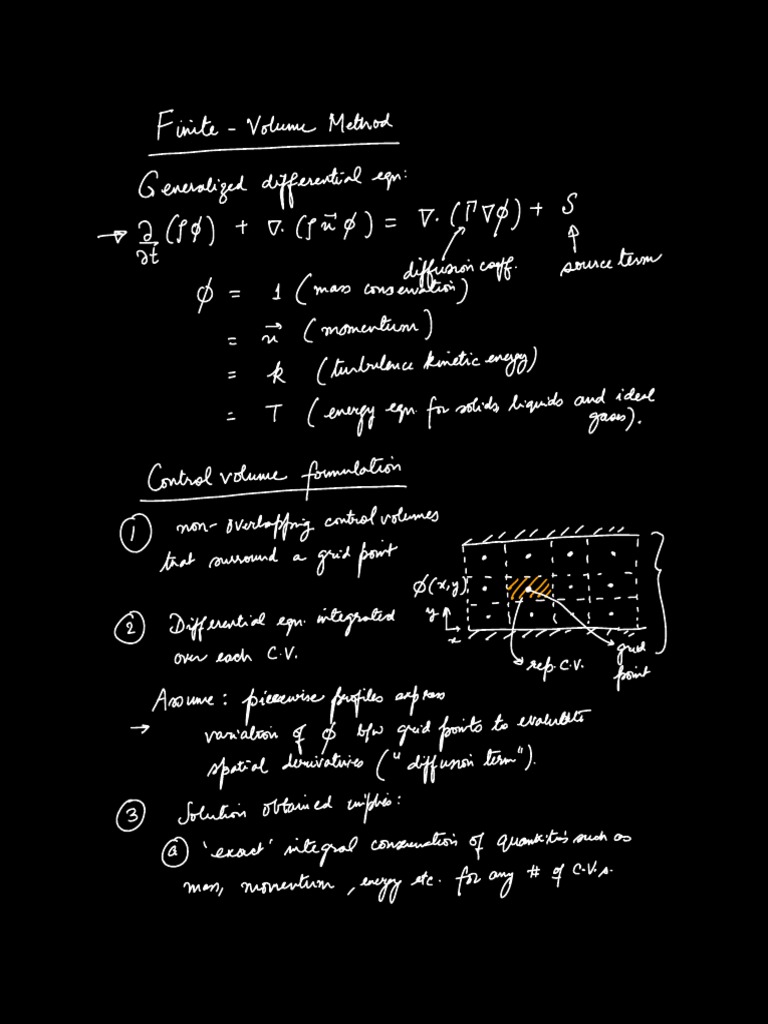 Finite - Volume Method
Generalized differential eqn:
→ ∂/∂t (ρφ) + ∇. (ρu⃗φ) = ∇. (Γ∇φ) + S
diffusion coeff.
source term
φ = 1 (mass conservation)
= u⃗ (momentum)
= k (turbulence kinetic energy)
= T (energy eqn. for solids, liquids and ideal
gases).
Control volume formulation
① non-overlapping control volumes
that surround a grid point
φ(x,y)
y
x
rep. C.V.
grid
point
② Differential eqn. integrated
over each C.V.
Assume: piecewise profiles express
→ variation of φ b/w grid points to evaluate
spatial derivatives ("diffusion term").
③ Solution obtained implies:
ⓐ 'exact' integral conservation of quantities such as
mass, momentum, energy etc. for any # of C.V.s.